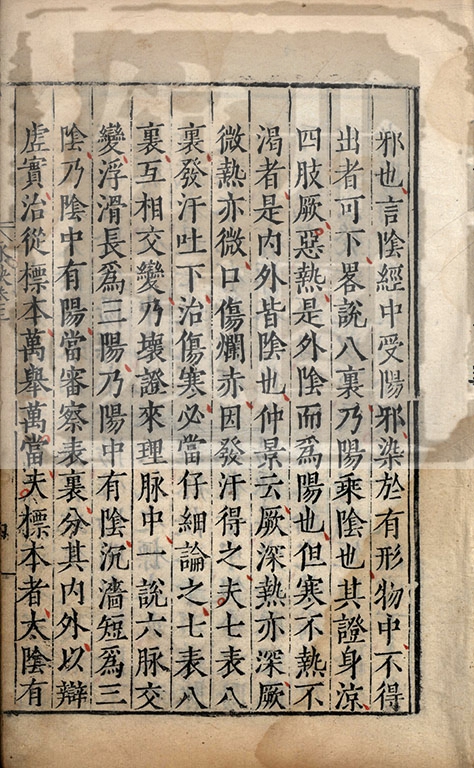 邪也言陰經中受陽邪染於有形物中不得
出者可下畧說八裏乃陽乘陰也其證身涼
四肢厥惡熱是外陰而爲陽也但寒不熱不
渴者是內外皆陰也仲景云厥深熱亦深厥
微熱亦微口傷爛赤因發汗得之夫七表八
裏發汗吐下治傷寒必當仔細論之七表八
裏互相交變乃壞證來理脉中一說六脉交
變浮滑長爲三陽乃陽中有陰沉濇短爲三
陰乃陰中有陽當審察表裏分其內外以辯
虛實治從標本萬舉萬當夫標本者太陰有